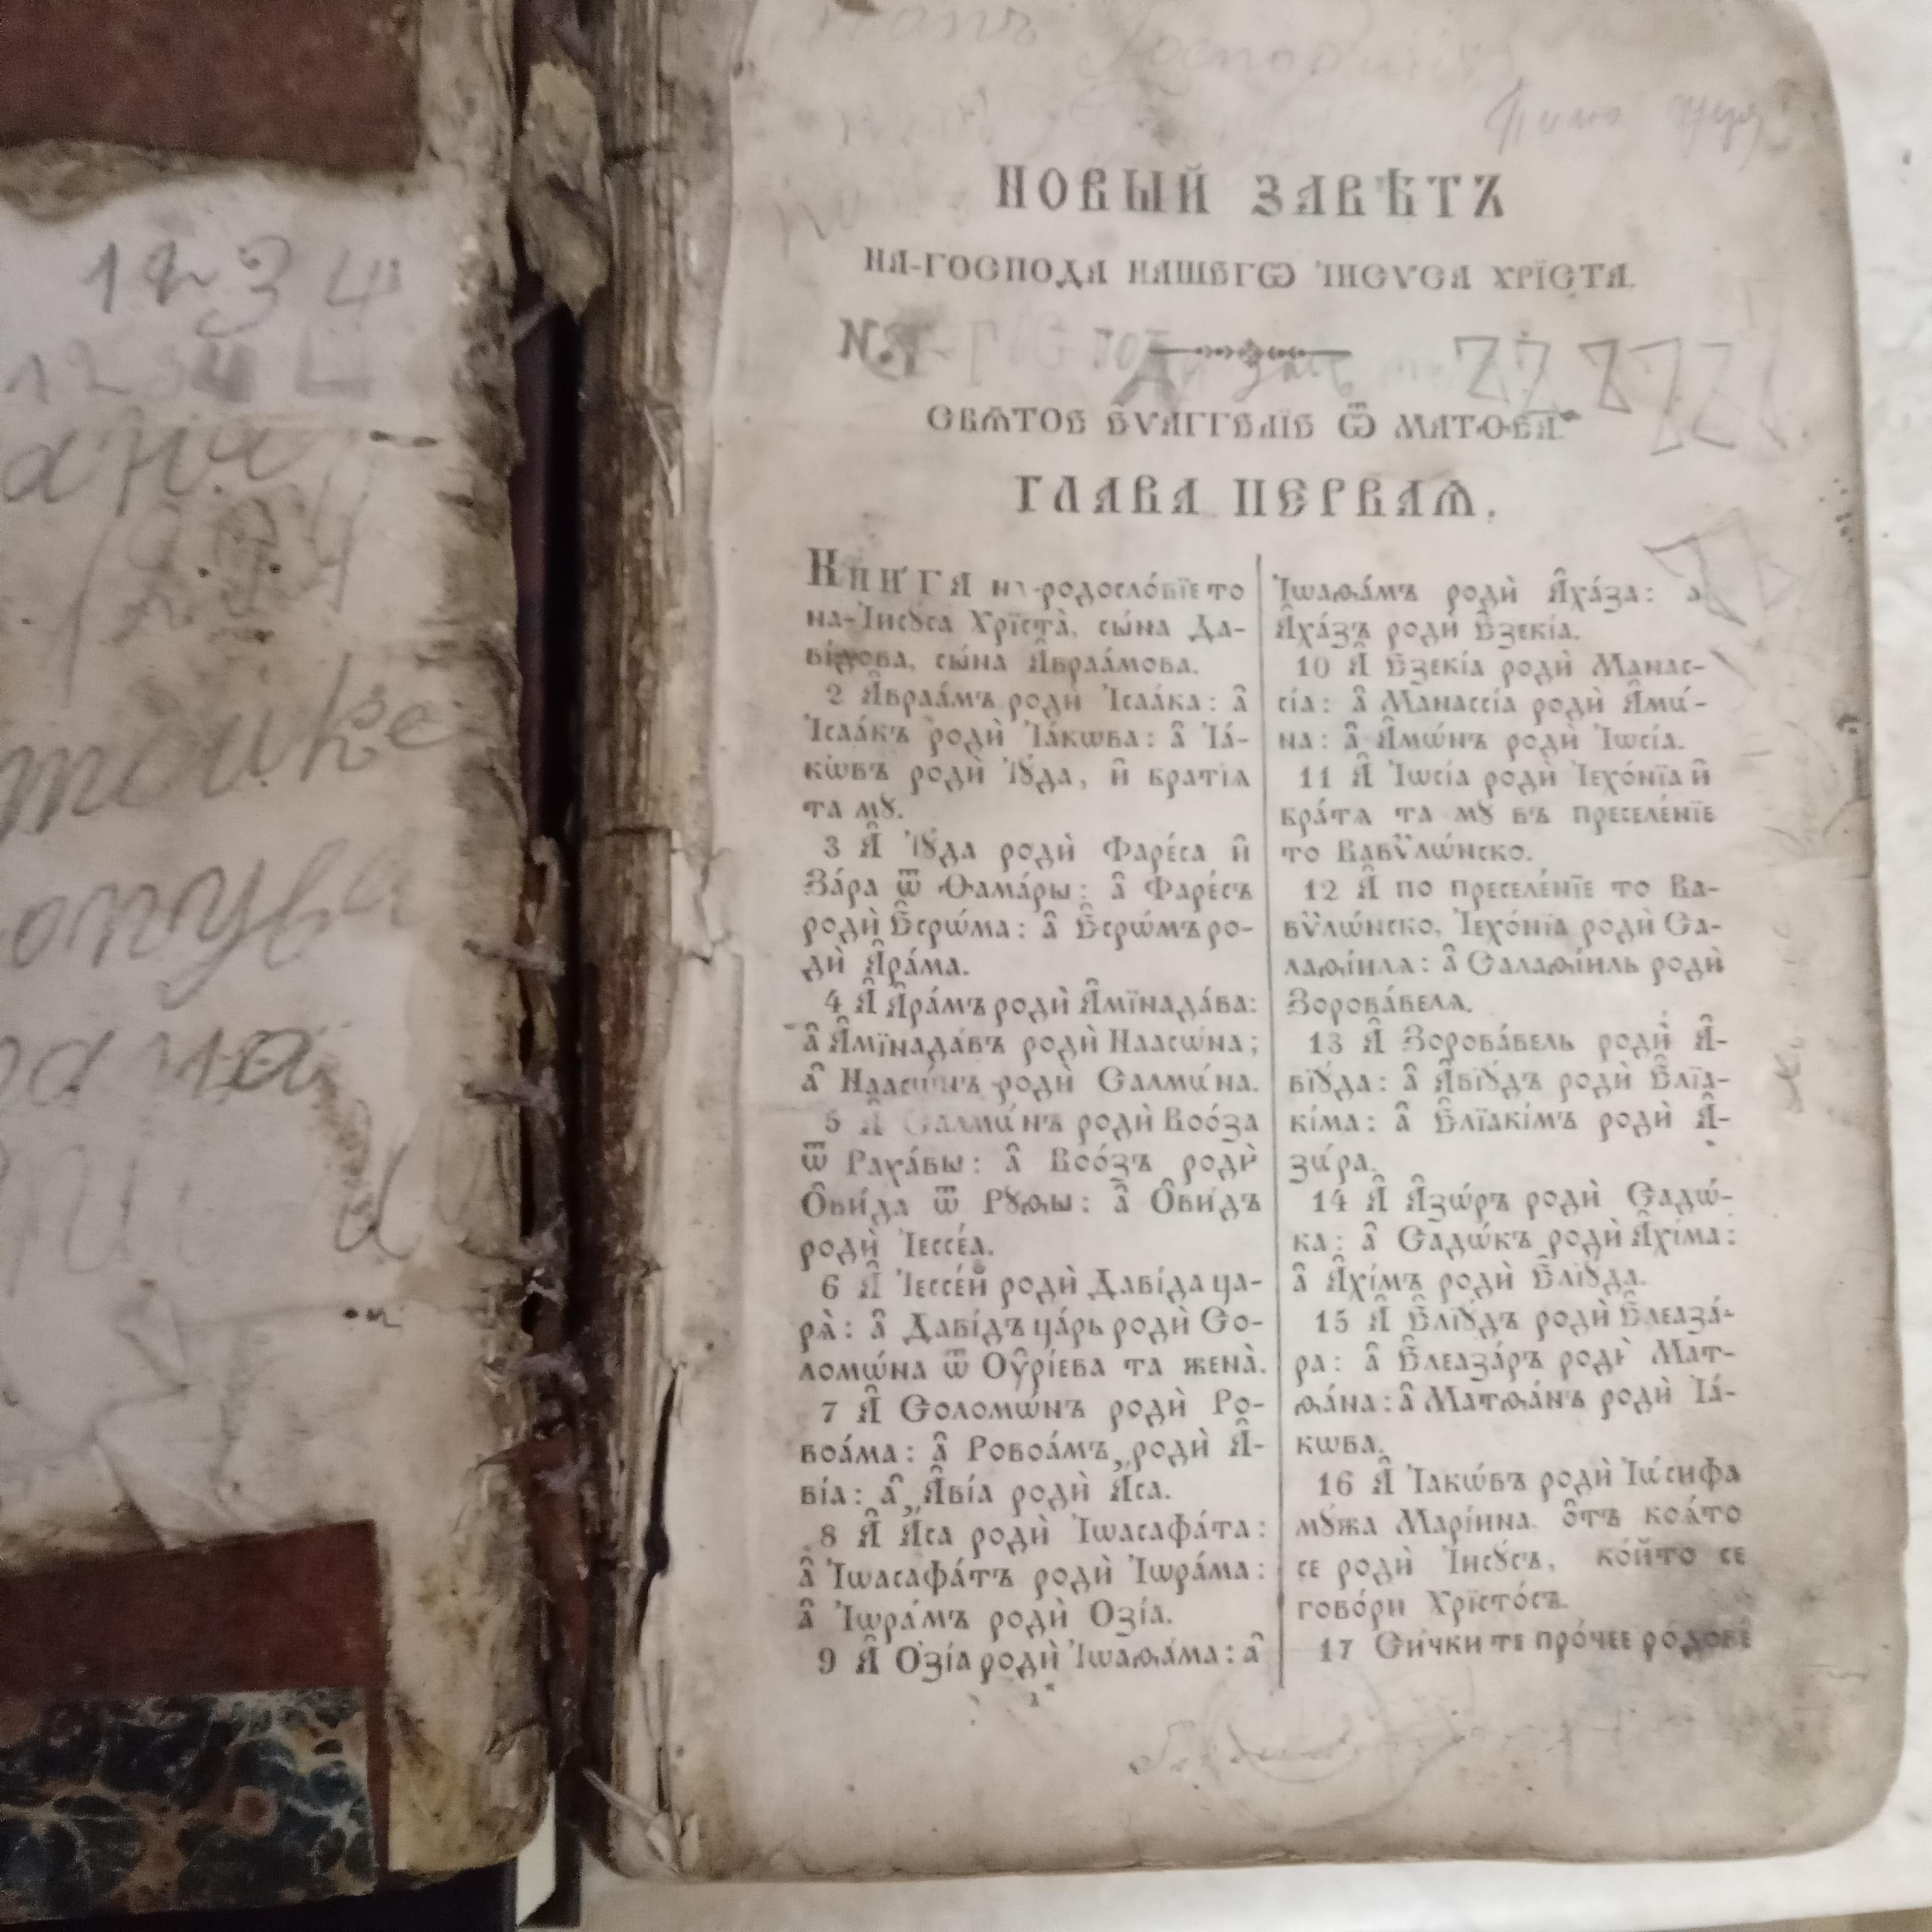 1 2 3 4
1 2 3 4
НОВЫЙ ЗАВѢТЪ
НА-ГОСПОДА НАШЕГѠ ІИСУСА ХРЇСТА.
СВѦТОЕ ЕѴАГГЕЛЇЕ Ѿ МАТѲЕА.
ГЛАВА ПЕРВАѦ.
Кни́га на-родосло́вїе то
на-І҆исꙋ́са Хрїста̀, сы́на Да-
ві́дова, сы́на А҆враа́мова.
2 А҆враа́мъ родѝ І҆саа́ка: а҆
І҆саа́къ родѝ І҆а́кѡва: а҆ І҆а́-
кѡвъ родѝ І҆ꙋ́да, и҆ братїѧ
та мꙋ.
3 А҆ І҆ꙋ́да родѝ Фаре́са и҆
За́ра ѿ Ѳама́ры: а҆ Фаре́съ
родѝ Е҆срѡ́ма: а҆ Е҆срѡ́мъ ро-
дѝ А҆ра́ма.
4 А҆ А҆ра́мъ родѝ А҆мїнада́ва:
а҆ А҆мїнада́въ родѝ Наасѡ́на;
а҆ Наасѡ́нъ родѝ Салмѡ́на.
5 А҆ Салмѡ́нъ родѝ Воо́за
ѿ Раха́вы: а҆ Воо́зъ родѝ
Ѻ҆ви́да ѿ Рꙋ́ѳы: а҆ Ѻ҆ви́дъ
родѝ І҆ессе́а.
6 А҆ І҆ессе́й родѝ Даві́да ца-
рѧ̀: а҆ Даві́дъ ца́рь родѝ Со-
ломѡ́на ѿ Оу҆рі́ева та жена̀.
7 А҆ Соломѡ́нъ родѝ Ро-
воа́ма: а҆ Ровоа́мъ родѝ А҆-
ві́а: а҆ А҆ві́а родѝ А҆́са.
8 А҆ А҆́са родѝ І҆ѡасафа́та:
а҆ І҆ѡасафа́тъ родѝ І҆ѡра́ма:
а҆ І҆ѡра́мъ родѝ Ози́а.
9 А҆ Озі́а родѝ І҆ѡаѳа́ма: а҆
1*
І҆ѡаѳа́мъ родѝ А҆ха́за: а҆
А҆ха́зъ родѝ Е҆зекі́а.
10 А҆ Е҆зекі́а родѝ Манас-
сі́а: а҆ Манассі́а родѝ А҆мѡ́-
на: а҆ А҆мѡ́нъ родѝ І҆ѡсі́а.
11 А҆ І҆ѡсі́а родѝ І҆ехо́нїа и҆
бра́тѧ та мꙋ въ преселе́нїе
то Вавѷлѡ́нско.
12 А҆ по преселе́нїе то Ва-
вѷлѡ́нско, І҆ехо́нїа родѝ Са-
лаѳі́илѧ: а҆ Салаѳі́иль родѝ
Зорова́велѧ.
13 А҆ Зорова́вель родѝ А҆-
вїꙋ́да: а҆ А҆вїꙋ́дъ родѝ Е҆лїа-
кі́ма: а҆ Е҆лїакі́мъ родѝ А҆-
зѡ́ра.
14 А҆ А҆зѡ́ръ родѝ Садѡ́-
ка: а҆ Садѡ́къ родѝ А҆хі́ма:
а҆ А҆хі́мъ родѝ Е҆лїꙋ́да.
15 А҆ Е҆лїꙋ́дъ родѝ Е҆леаза́-
ра: а҆ Е҆леаза́ръ родѝ Мат-
ѳа́на: а҆ Матѳа́нъ родѝ І҆а́-
кѡва.
16 А҆ І҆акѡ́въ родѝ І҆ѡ́сифа
мꙋ́жа Марі́ина, ѻ҆тъ коѧ́то
се родѝ І҆исꙋ́съ, ко́йто се
гово́ри Хрїсто́съ.
17 Си́чки те про́чее ро́дове